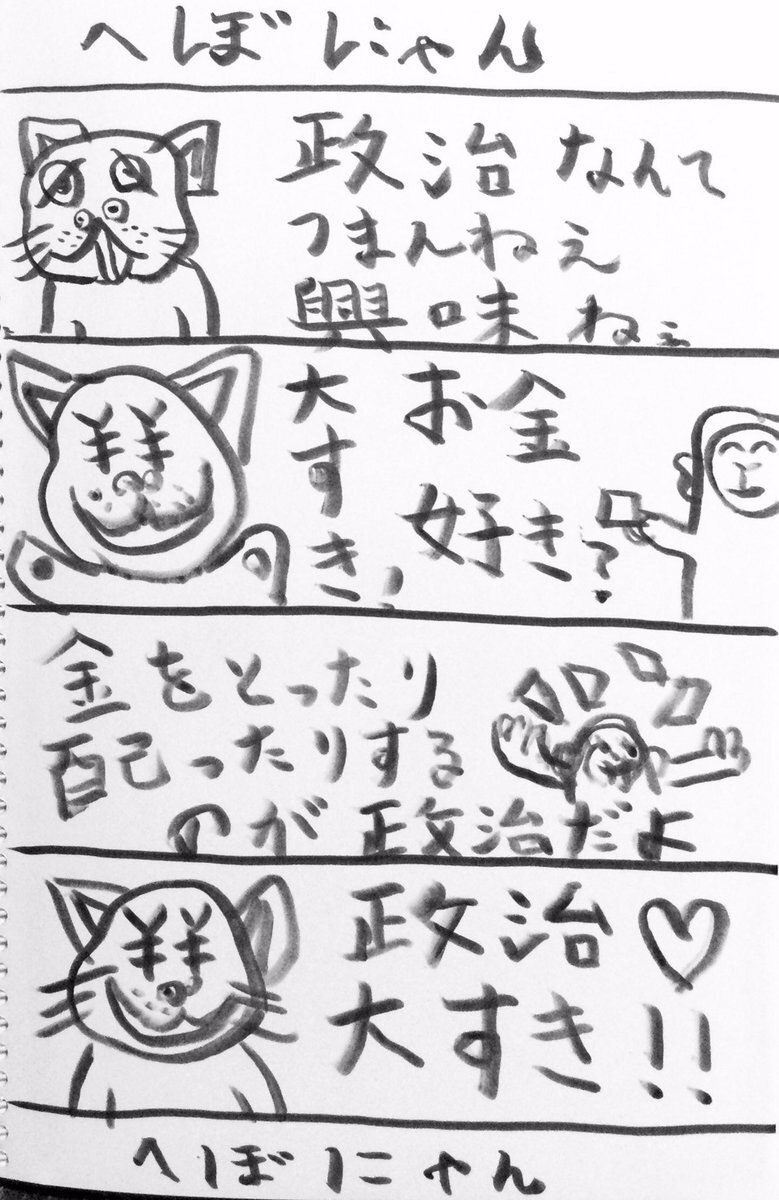 へぼにゃん
政治なんて
つまんねえ
興味ねぇ
お金
好き?
大すき!
金をとったり
配ったりする
のが政治だよ
政治♡
大すき!!
へぼにゃん